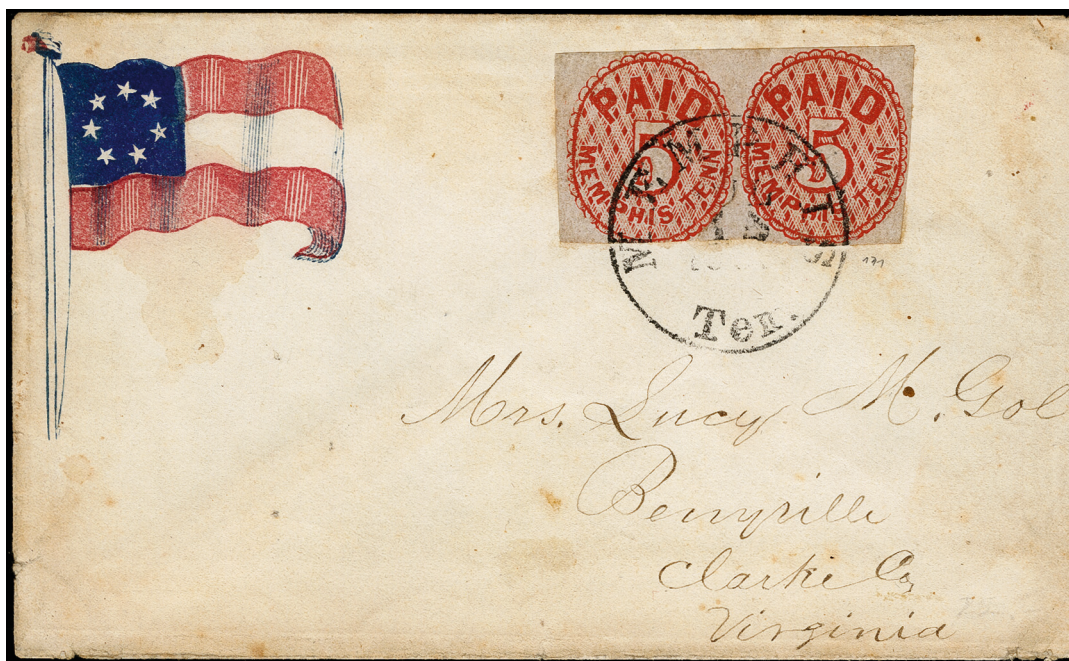 PAID 5 MEMPHIS TENN
PAID 5 MEMPHIS TENN
MEMPHIS
Ten.
171
Mrs. Lucy M. Gol
Berryville
Clarke Co,
Virginia